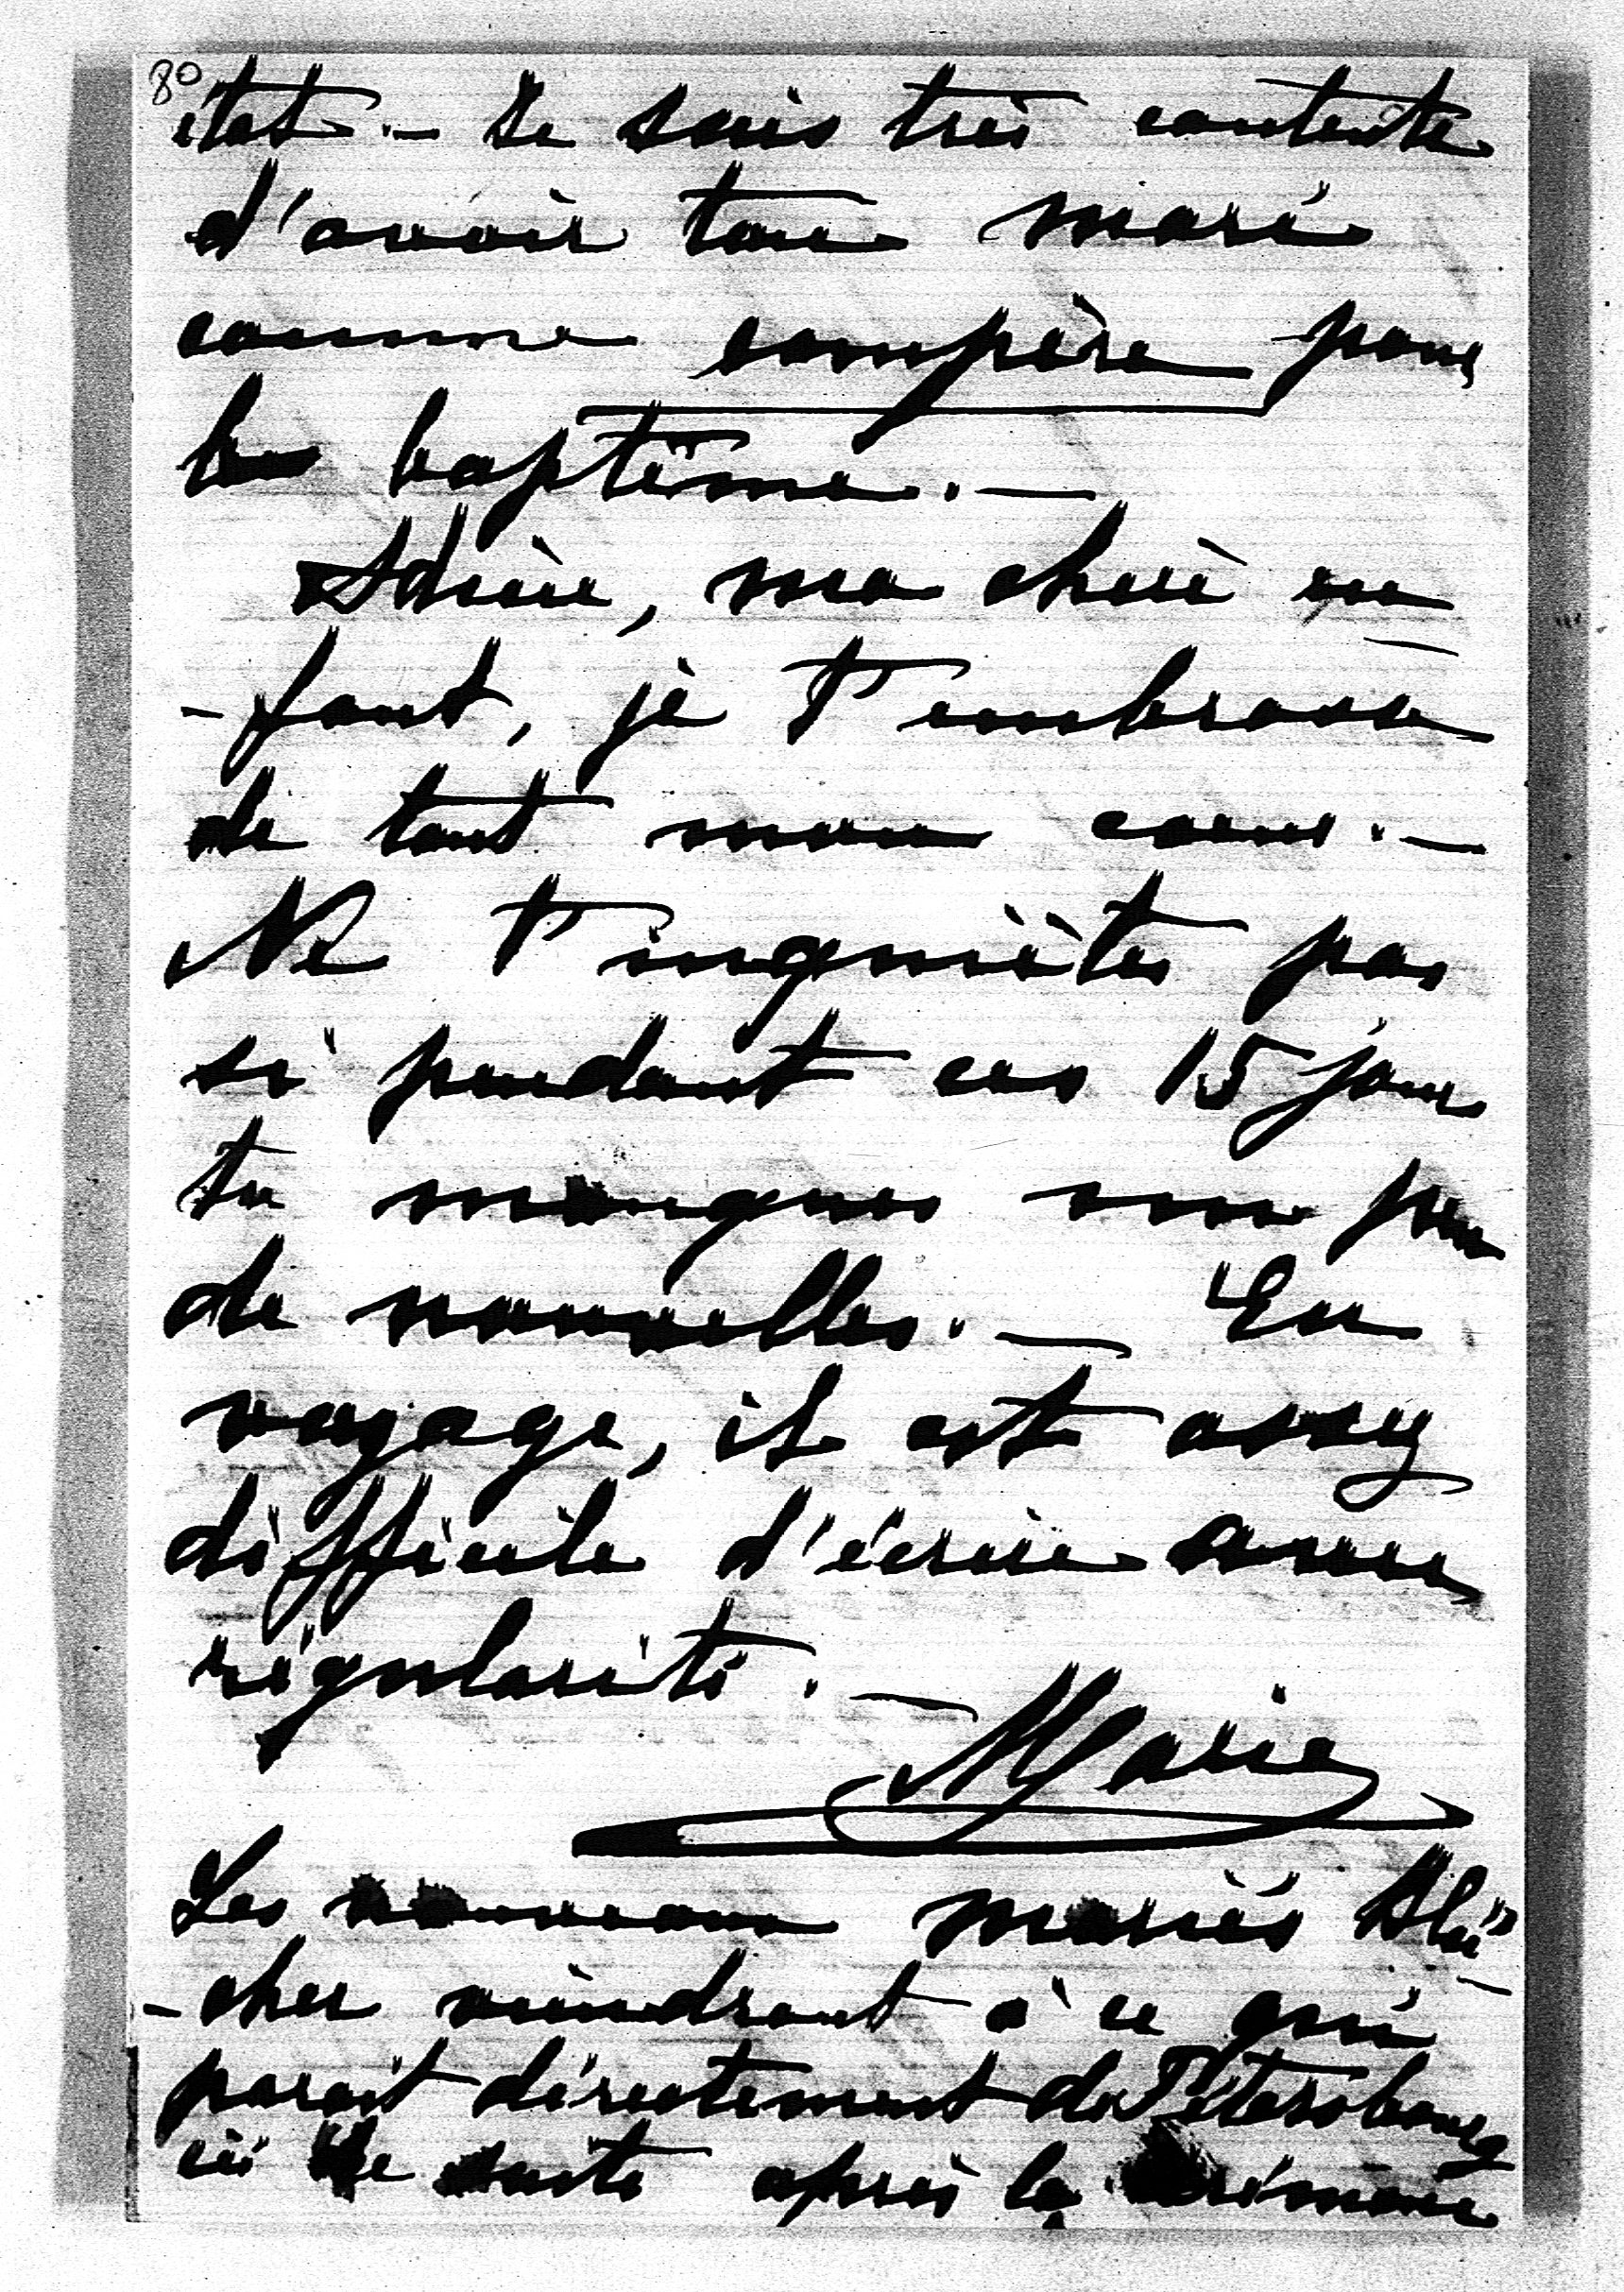 80
état. — Je suis très contente
d'avoir ton mari
comme compère pour
le baptême. —
Adieu, ma chère en
-fant, je t'embrasse
de tout mon coeur. —
Ne t'inquiètes pas
si pendant ces 15 jours
tu manques un peu
de nouvelles. — En
voyage, il est assez
difficile d'écrire avec
régularité. —
Marie
Les nouveaux mariés Blü-
-cher viendront à ce qui
parait directement de Pétersbourg
ici de suite après la cérémonie